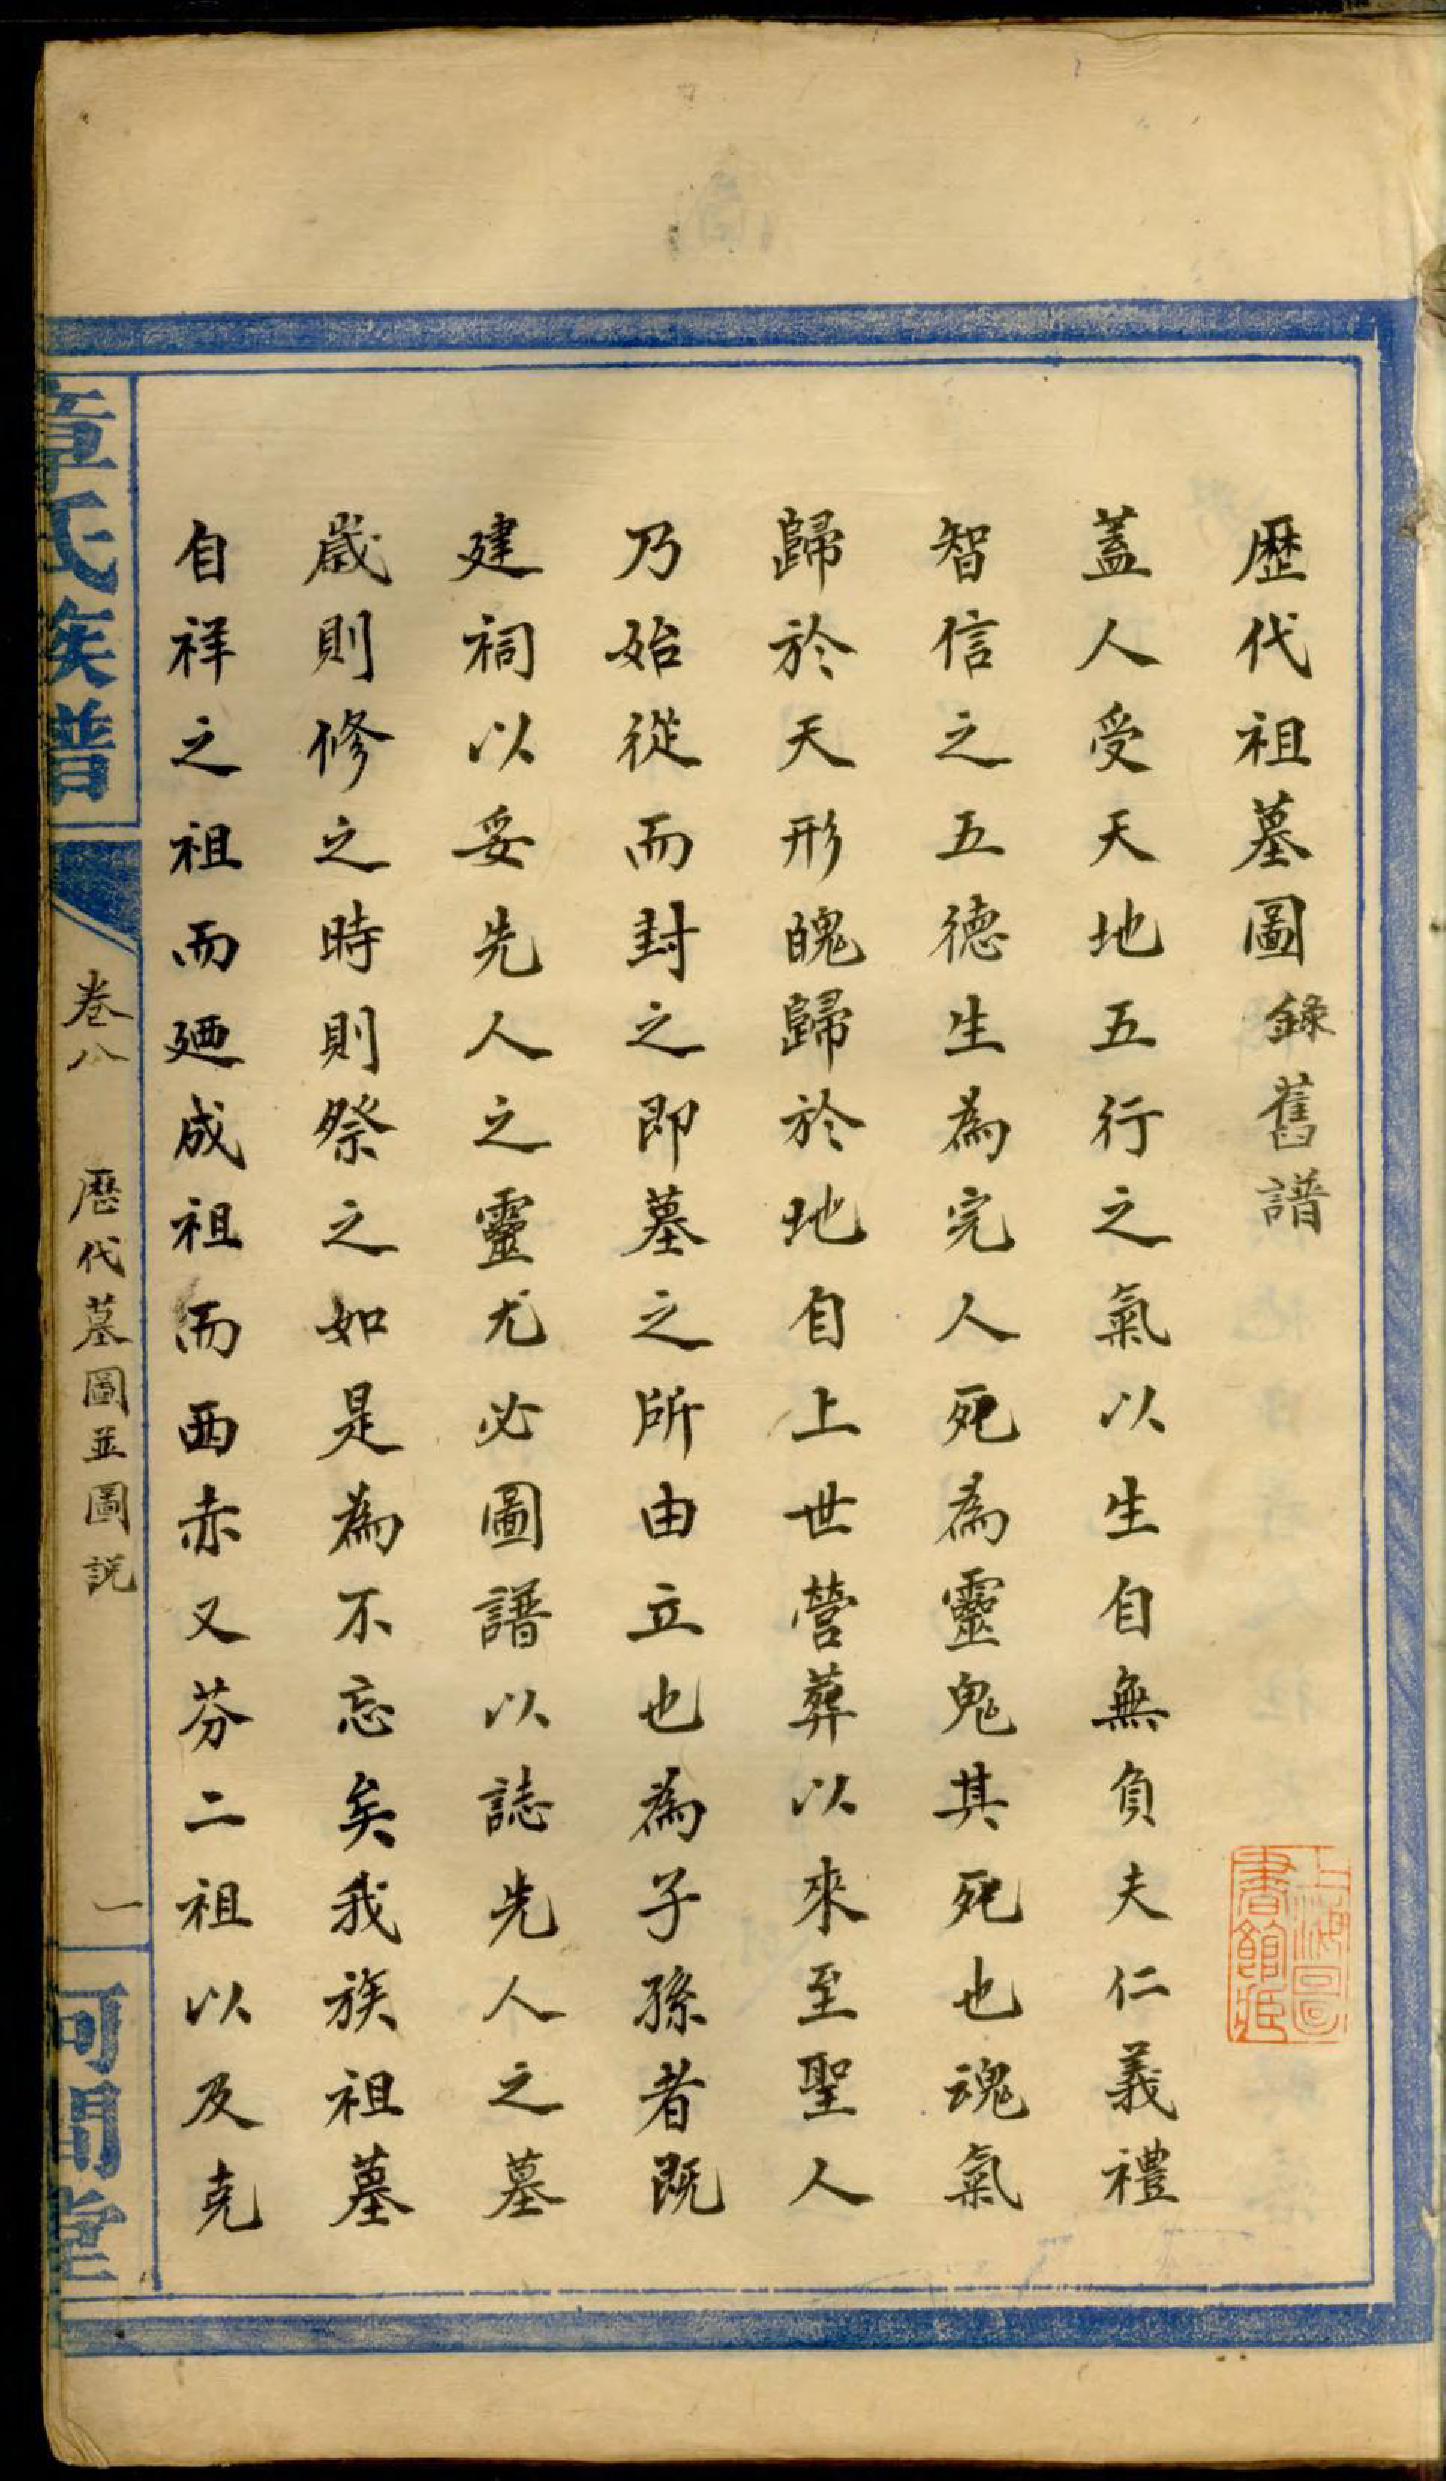 歷代祖墓圖 錄舊譜
蓋人受天地五行之氣以生自無負夫仁義禮
智信之五德生為完人死為靈鬼其死也魂氣
歸於天形魄歸於地自上世營葬以來至聖人
乃始從而封之即墓之所由立也為子孫者既
建祠以妥先人之靈尤必圖譜以誌先人之墓
歲則修之時則祭之如是為不忘矣我族祖墓
自祥之祖而廼成祖而西赤又芬二祖以及克
章氏族譜
卷八 歷代墓圖並圖說
一
可問堂
上海圖書館藏